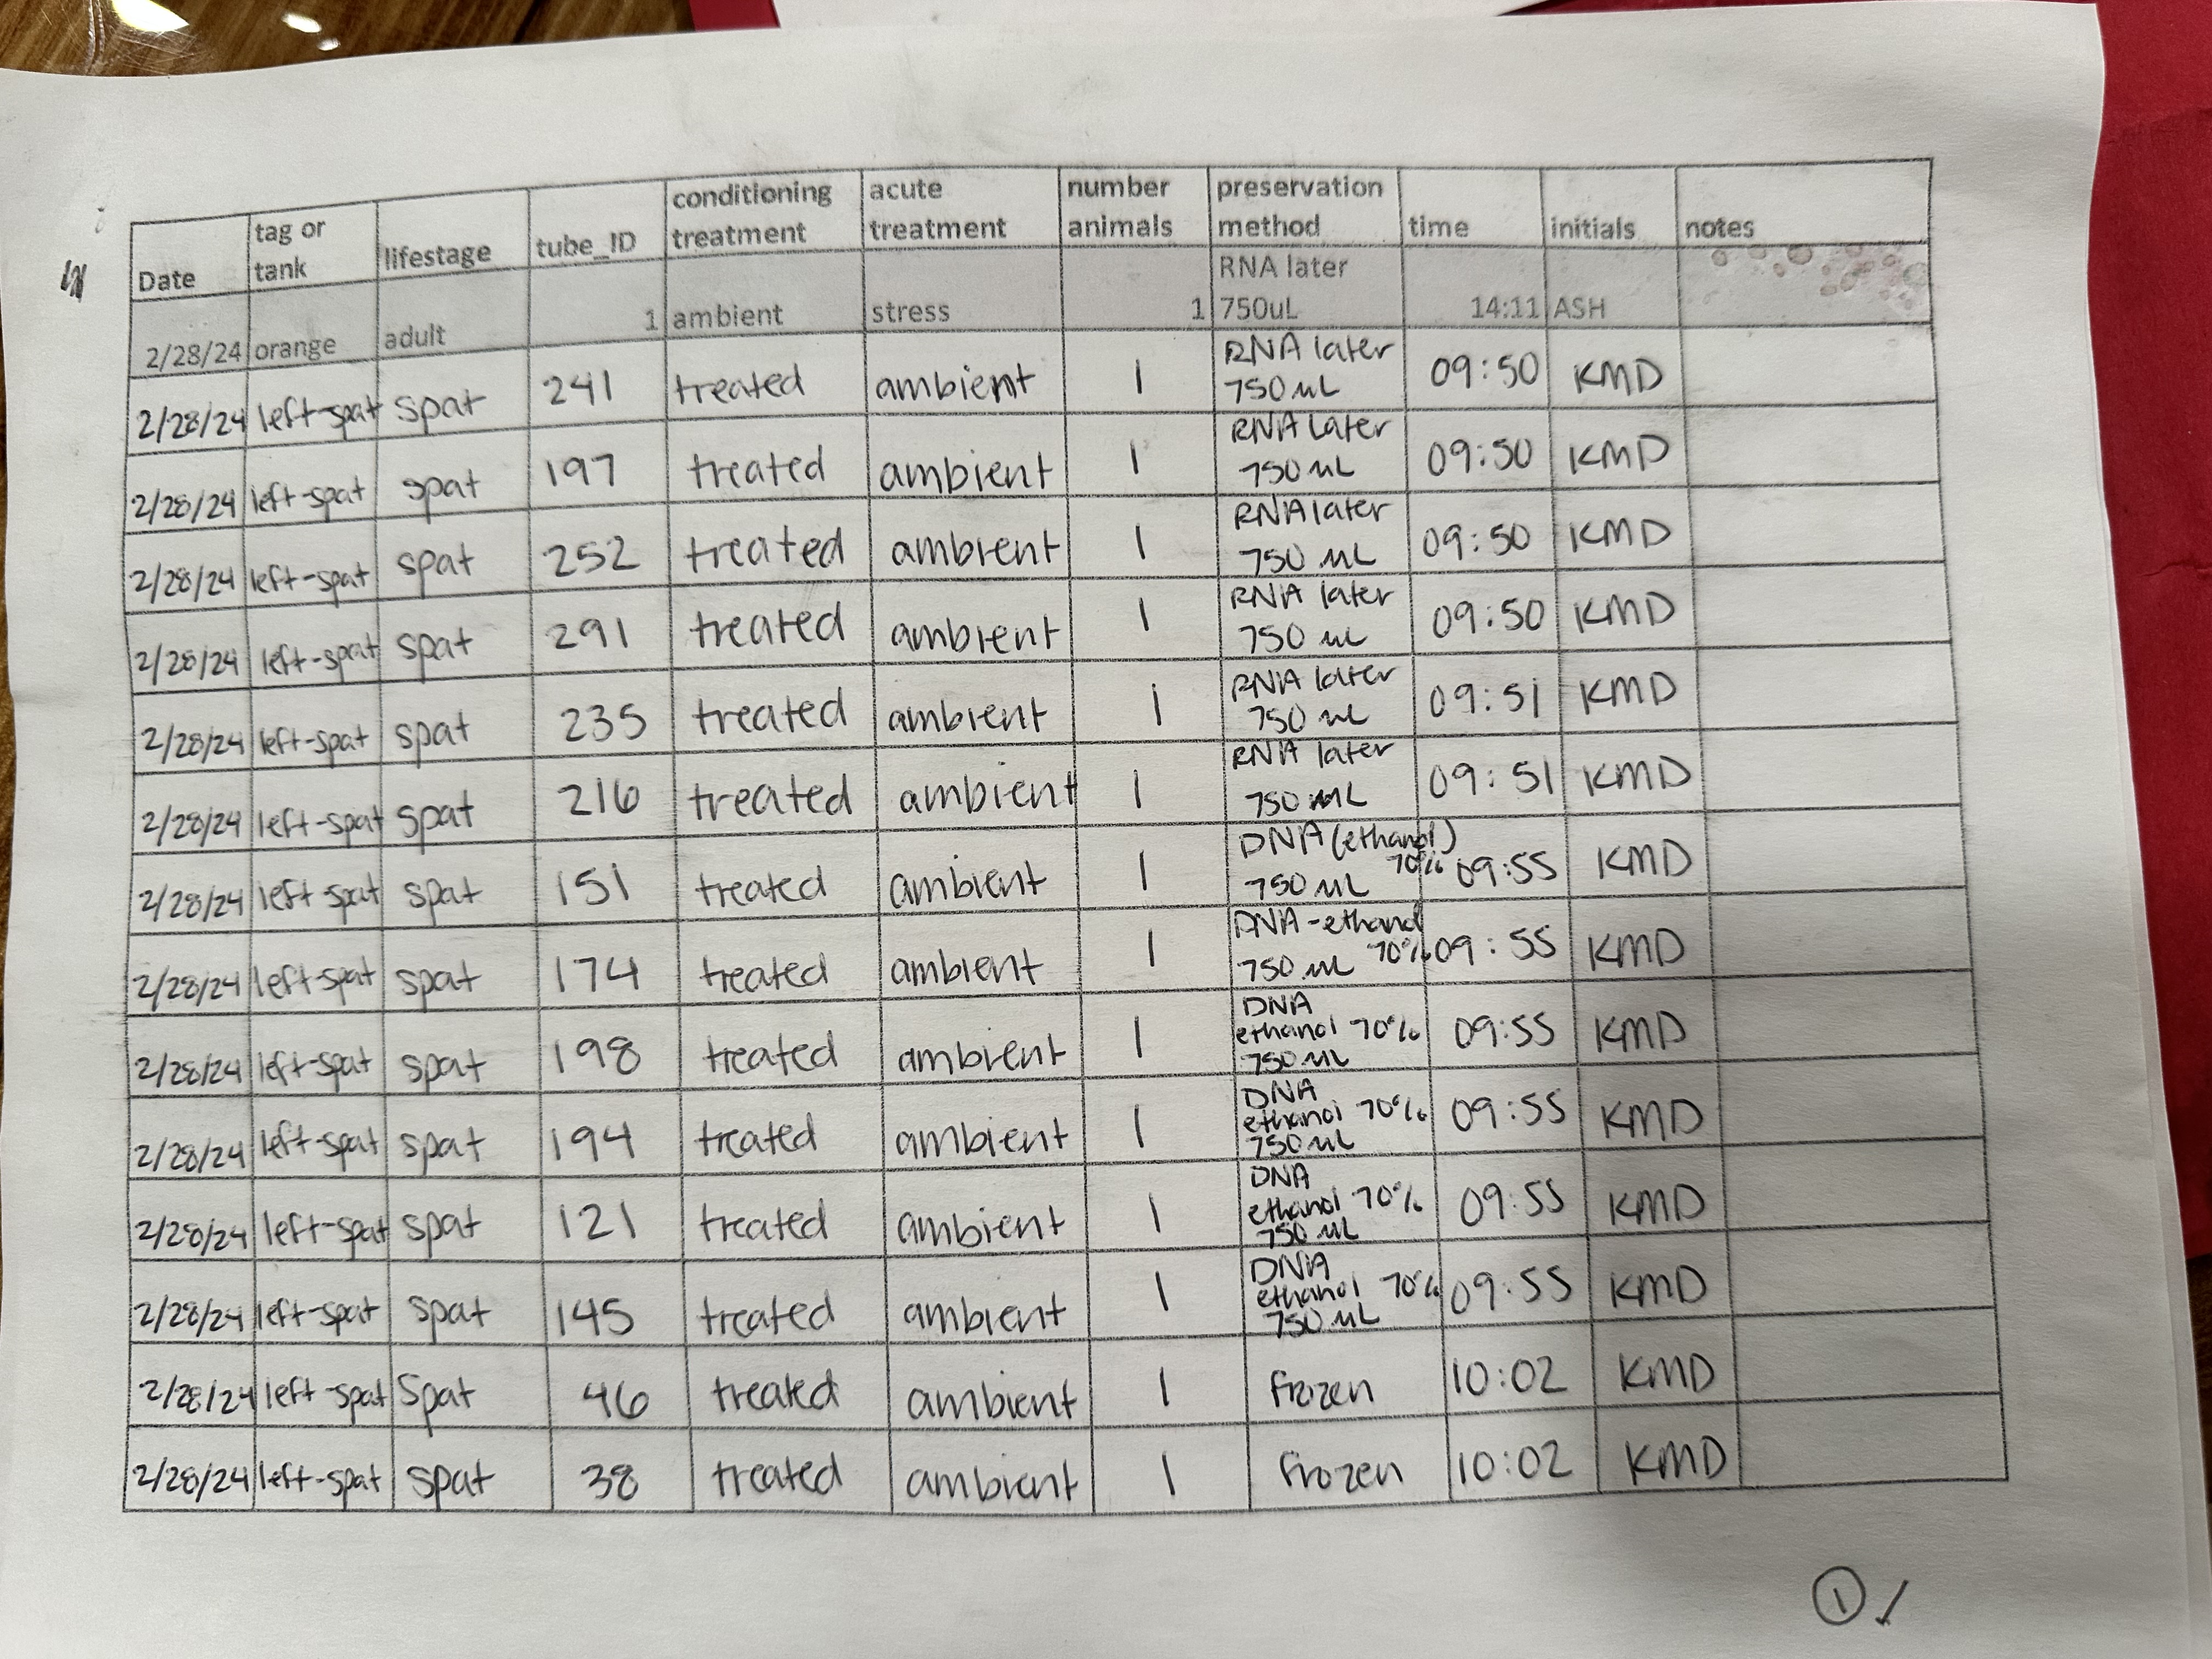 Date tag or tank lifestage tube_ID conditioning treatment acute treatment number animals preservation method time initials notes
2/28/24 orange adult 1 ambient stress 1 RNA later 750uL 14:11 ASH
2/28/24 left-spat spat 241 treated ambient 1 RNA later 750 uL 09:50 KMD
2/28/24 left-spat spat 197 treated ambient 1 RNA Later 750 uL 09:50 KMD
2/28/24 left-spat spat 252 treated ambient 1 RNA later 750 uL 09:50 KMD
2/28/24 left-spat spat 291 treated ambient 1 RNA later 750 uL 09:50 KMD
2/28/24 left-spat spat 235 treated ambient 1 RNA later 750 uL 09:51 KMD
2/28/24 left-spat spat 216 treated ambient 1 RNA later 750 uL 09:51 KMD
2/28/24 left-spat spat 151 treated ambient 1 DNA (ethanol) 70% 750 uL 09:55 KMD
2/28/24 left-spat spat 174 treated ambient 1 DNA-ethanol 70% 750 uL 09:55 KMD
2/28/24 left-spat spat 198 treated ambient 1 DNA ethanol 70% 750 uL 09:55 KMD
2/28/24 left-spat spat 194 treated ambient 1 DNA ethanol 70% 750 uL 09:55 KMD
2/28/24 left-spat spat 121 treated ambient 1 DNA ethanol 70% 750 uL 09:55 KMD
2/28/24 left-spat spat 145 treated ambient 1 DNA ethanol 70% 750 uL 09:55 KMD
2/28/24 left-spat spat 46 treated ambient 1 frozen 10:02 KMD
2/28/24 left-spat spat 38 treated ambient 1 frozen 10:02 KMD
1